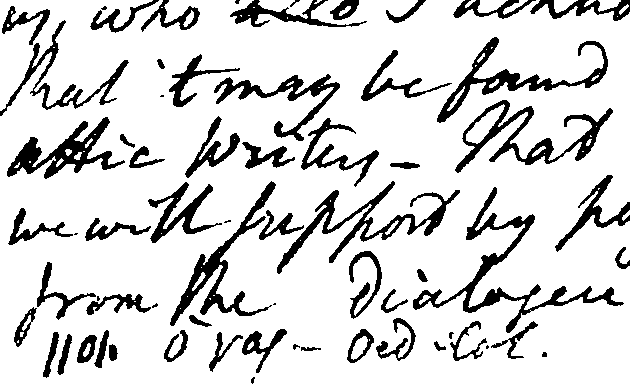 who also I acknow
that 't may be found
attic writers – That
we will support by pa
from the Dialogeu
1101. ὁ γας – Oed. Col.